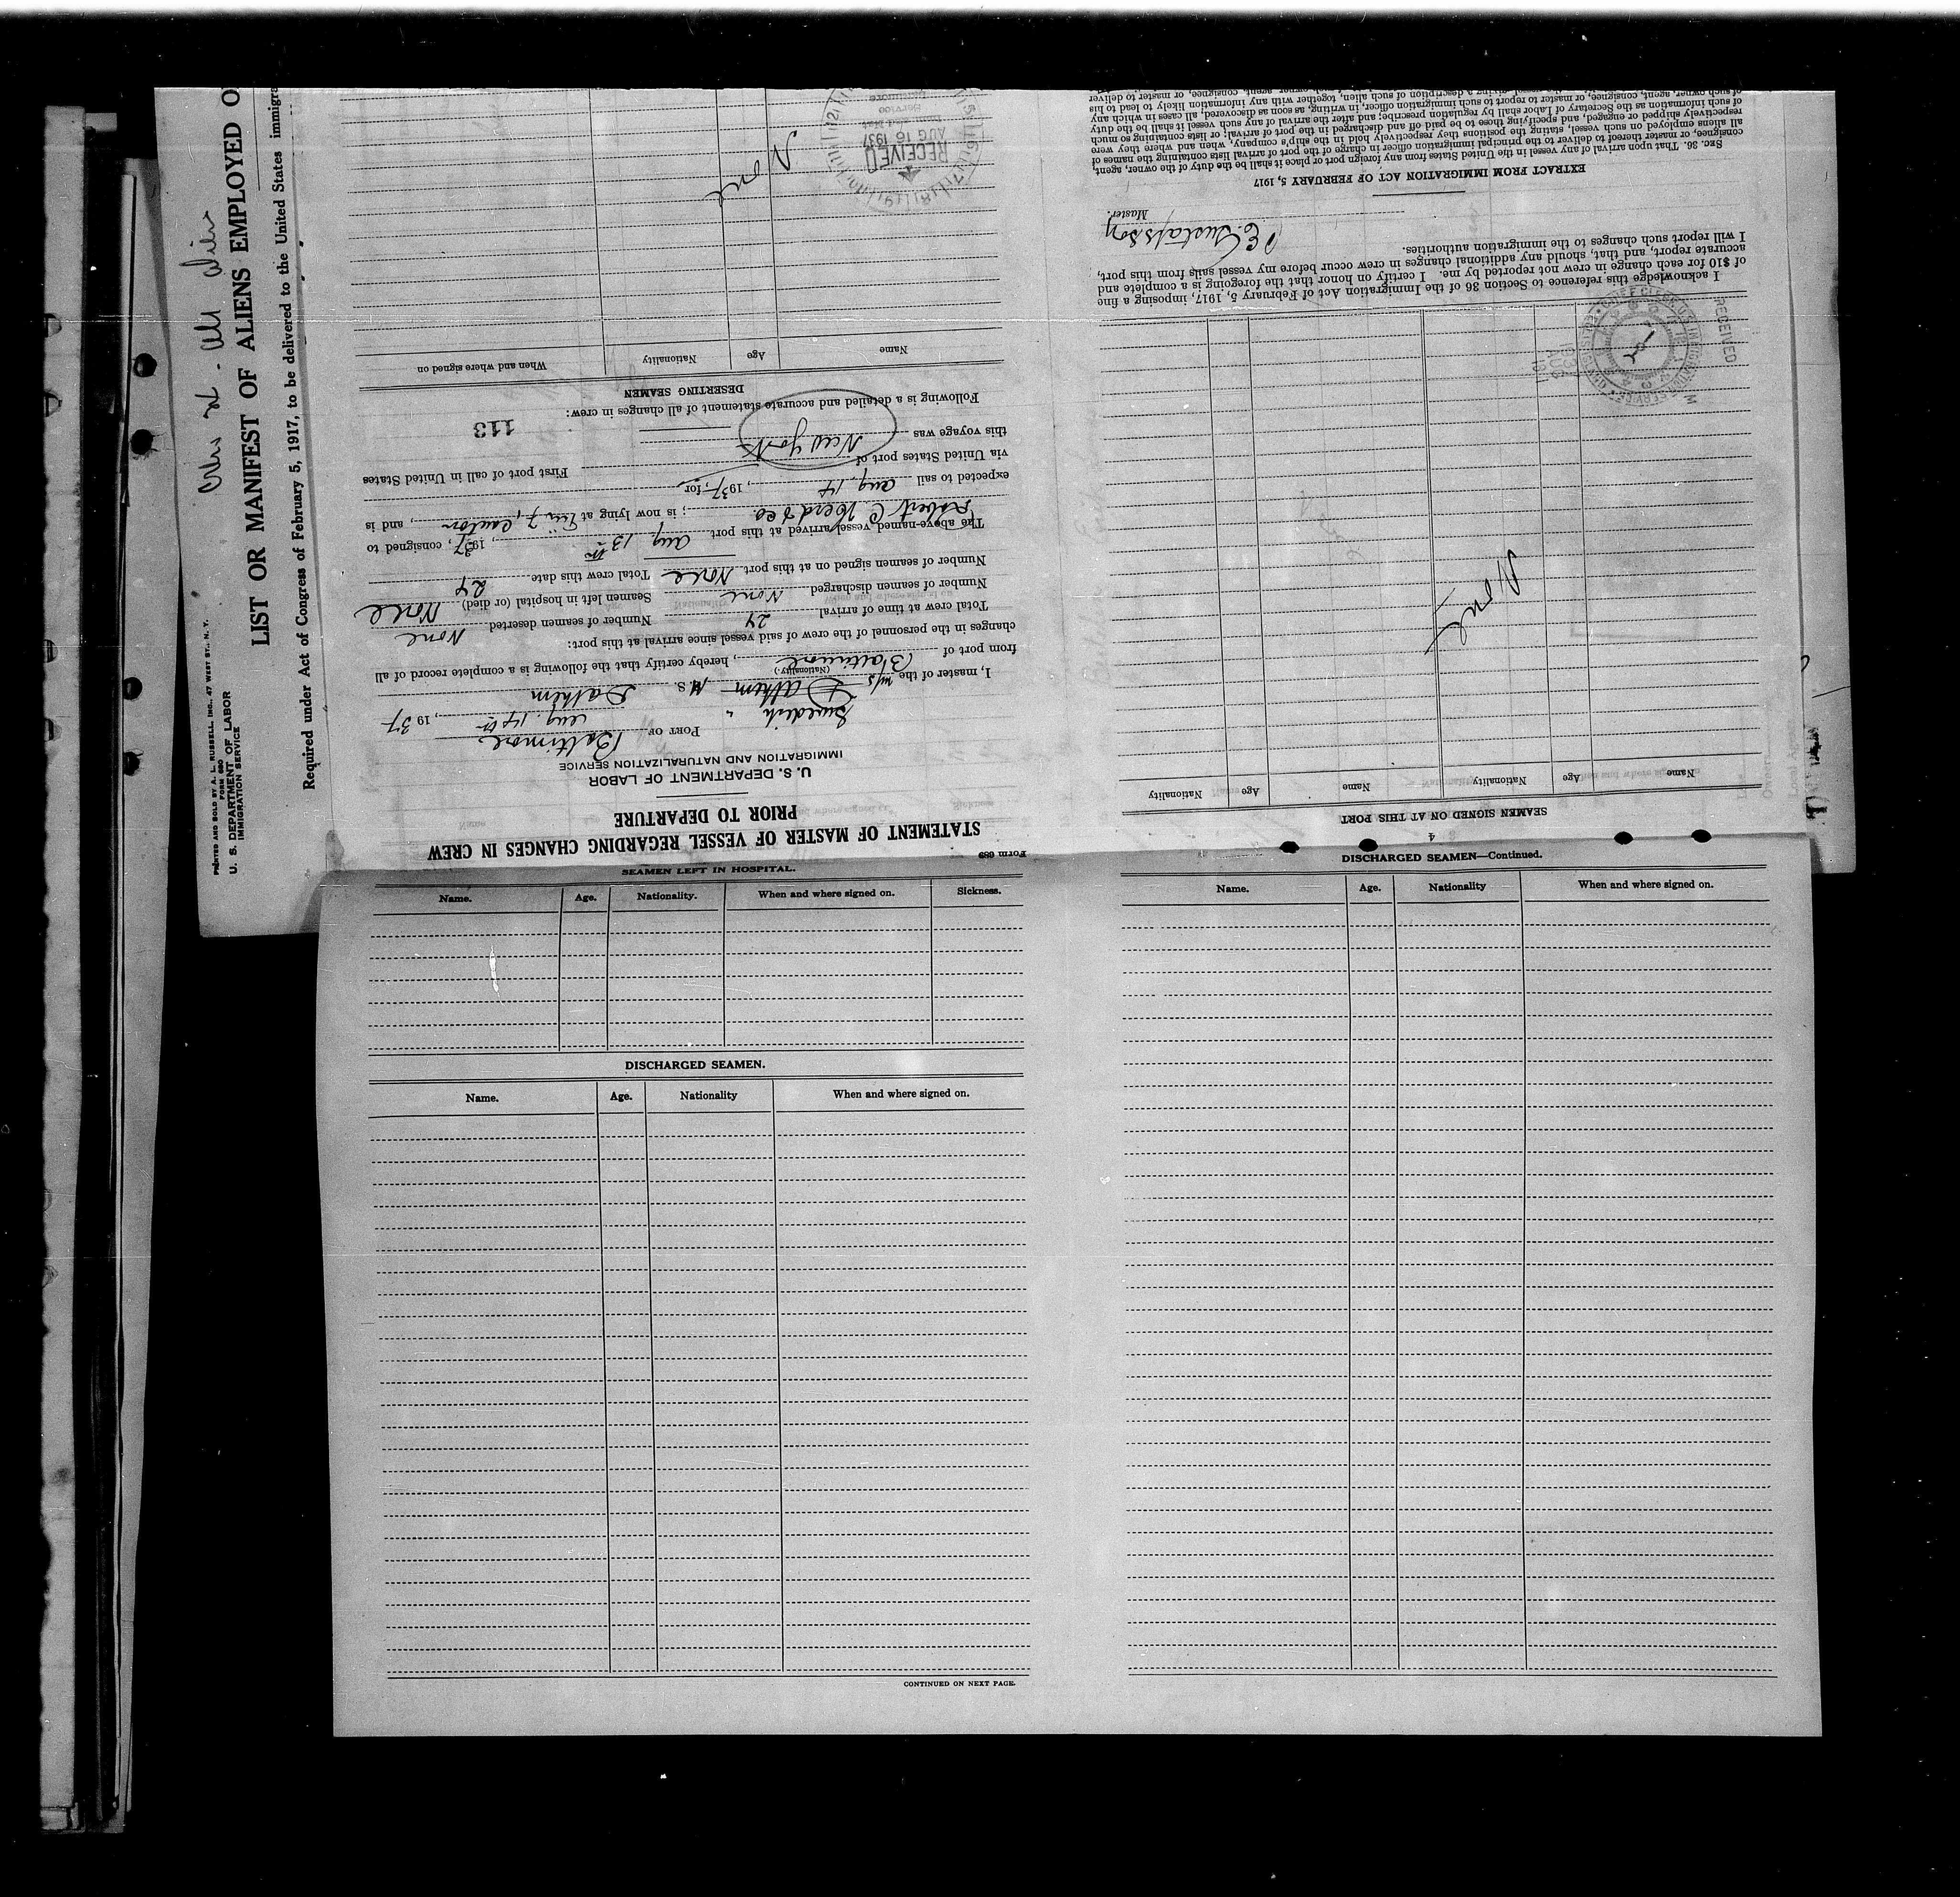 PRINTED AND SOLD BY A. L. RUSSELL, INC., 47 WEST ST., N. Y.
FORM 680
U. S. DEPARTMENT OF LABOR
IMMIGRATION SERVICE
LIST OR MANIFEST OF ALIENS EMPLOYED O
Required under Act of Congress of February 5, 1917, to be delivered to the United States immigra
Form 689
STATEMENT OF MASTER OF VESSEL REGARDING CHANGES IN CREW
PRIOR TO DEPARTURE
U. S. DEPARTMENT OF LABOR
IMMIGRATION AND NATURALIZATION SERVICE
Swedish
PORT OF Baltimore Aug. 14th, 1937
I, master of the m/s Dalhem M.S. Dalhem
(Nationality)
from port of Baltimore, hereby certify that the following is a complete record of all
changes in the personnel of the crew of said vessel since arrival at this port:
Total crew at time of arrival 24 Number of seamen deserted None
Number of seamen discharged None Seamen left in hospital (or died) None
Number of seamen signed on at this port None Total crew this date 24
The above-named vessel arrived at this port Aug 13th, 1937, consigned to
Robert C Herd & Co.; is now lying at 7, Canton, and is
expected to sail Aug. 14, 1937, for
via United States port of First port of call in United States
this voyage was New York
Following is a detailed and accurate statement of all changes in crew:
113
DESERTING SEAMEN
Name Age Nationality When and where signed on
None
RECEIVED
AUG 16 1937
Service
Baltimore
4
SEAMEN SIGNED ON AT THIS PORT
Name Age Nationality Name Age Nationality
None
RECEIVED
I acknowledge this reference to Section 36 of the Immigration Act of February 5, 1917, imposing a fine
of $10 for each change in crew not reported by me. I certify on honor that the foregoing is a complete and
accurate report, and that, should any additional changes in crew occur before my vessel sails from this port,
I will report such changes to the immigration authorities.
E. Gustafsson
Master.
EXTRACT FROM IMMIGRATION ACT OF FEBRUARY 5, 1917
SEC. 36. That upon arrival of any vessel in the United States from any foreign port or place it shall be the duty of the owner, agent,
consignee, or master thereof to deliver to the principal immigration officer in charge of the port of arrival lists containing the names of
all aliens employed on such vessel, stating the positions they respectively hold in the ship's company, when and where they were
respectively shipped or engaged, and specifying those to be paid off and discharged in the port of arrival; or lists containing so much
of such information as the Secretary of Labor shall by regulation prescribe; and after the arrival of any such vessel it shall be the duty
of such owner, agent, consignee, or master to report to such immigration officer, in writing, as soon as discovered, all cases in which any
SEAMEN LEFT IN HOSPITAL.
Name. Age. Nationality. When and where signed on. Sickness.
DISCHARGED SEAMEN.
Name. Age. Nationality When and where signed on.
CONTINUED ON NEXT PAGE.
DISCHARGED SEAMEN—Continued.
Name. Age. Nationality When and where signed on.